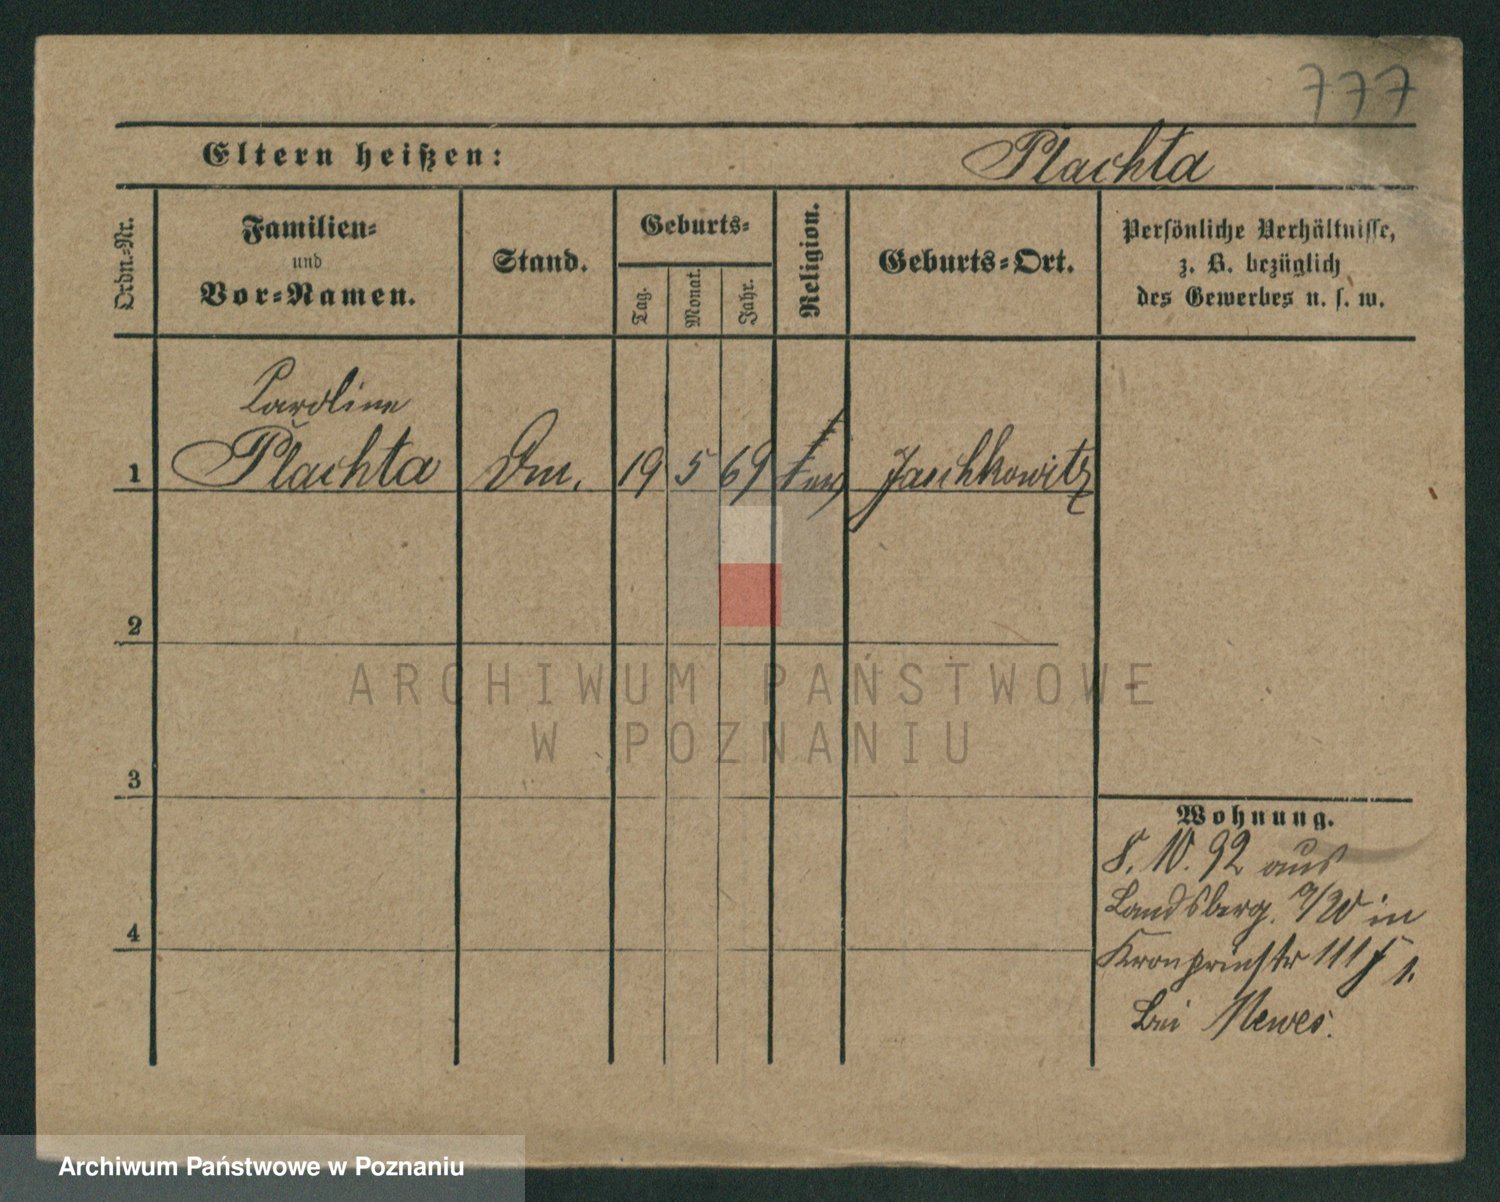 777
Eltern heißen: Plachta
Ordn.-Nr.
Familien-
und
Vor-Namen.
Stand.
Geburts-
Tag.
Monat.
Jahr.
Religion.
Geburts-Ort.
Persönliche Verhältnisse,
z. B. bezüglich
des Gewerbes u. s. w.
Caroline
1 Plachta 19 5 69 Jaschkowitz
2
3
4
Wohnung.
8. 10. 92 aus
Landsberg in
Kronprinstr 111
bei Mewes.
ARCHIWUM PAŃSTWOWE
W POZNANIU
Archiwum Państwowe w Poznaniu